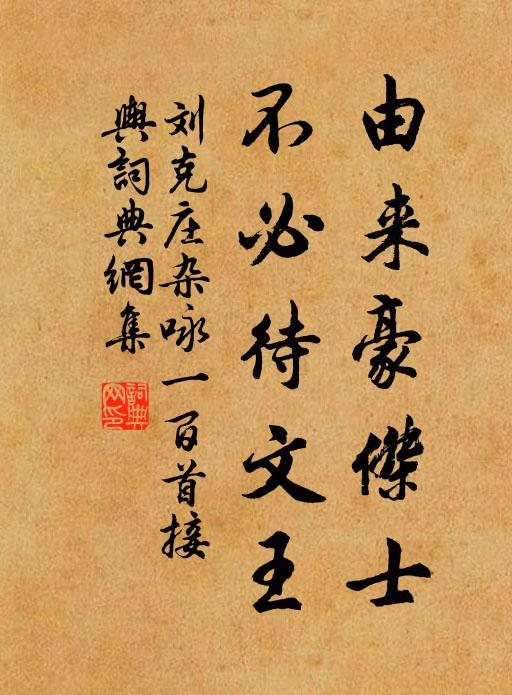 由来豪傑士
不必待文王
刘克庄杂咏一百首接
輿詞典網集
詞典
网印